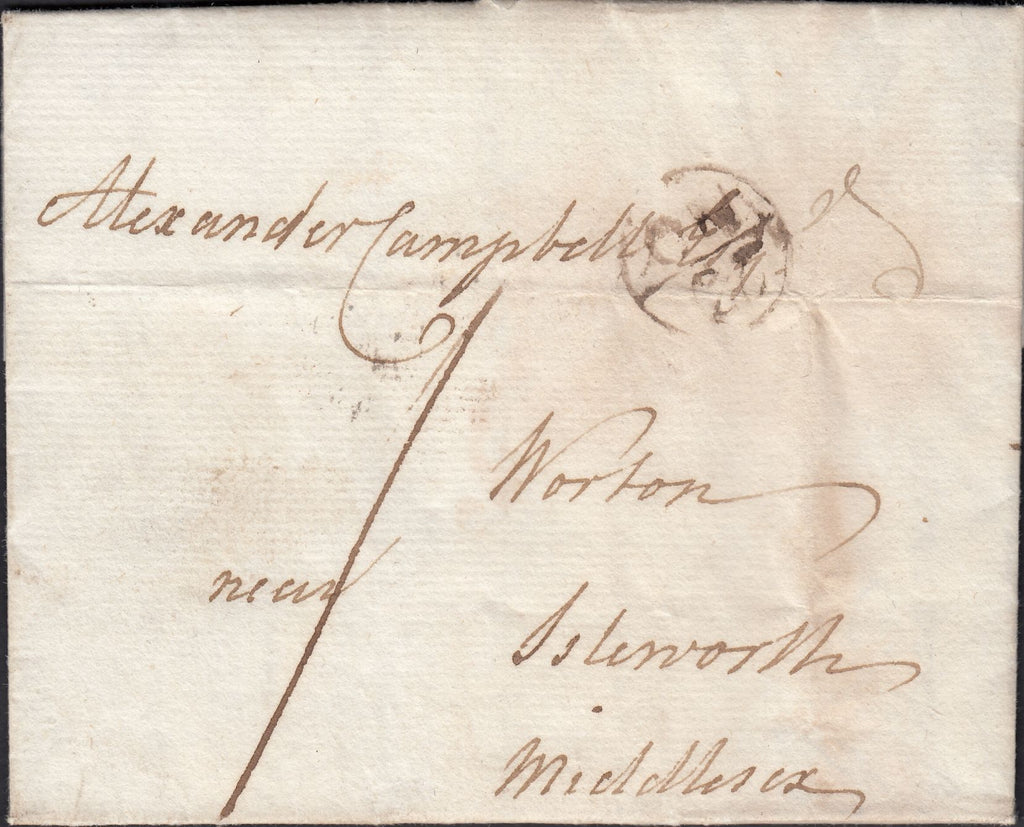 Alexander Campbell Esqr
Worton
near
Isleworth
Middlesex